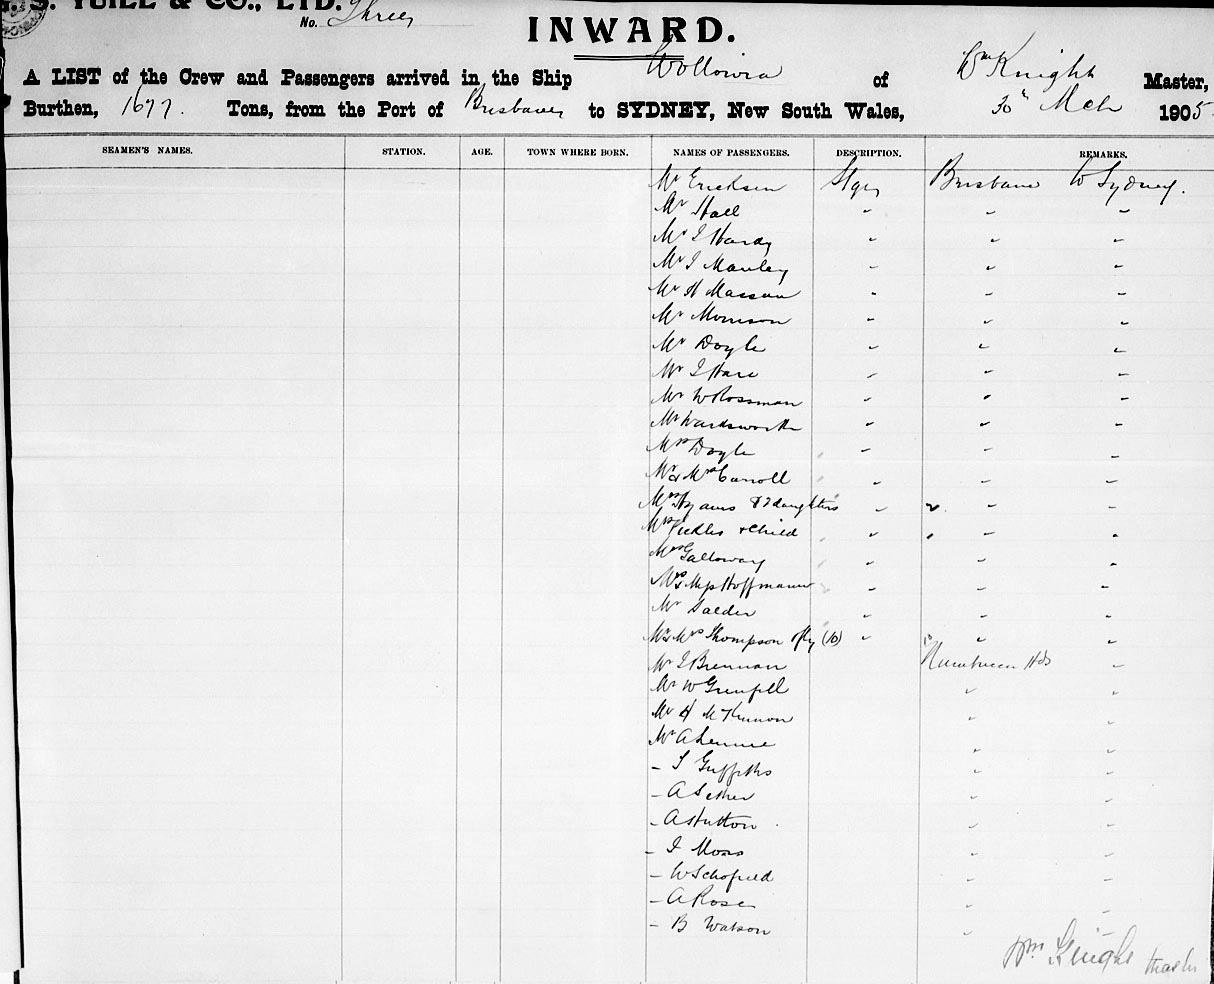 S. YUILL & CO., LTD.
No. Three
INWARD.
A LIST of the Crew and Passengers arrived in the Ship Wollowra of Wm Knight Master,
Burthen, 1677. Tons, from the Port of Brisbane to SYDNEY, New South Wales, 30th Mch 1905
SEAMEN'S NAMES. STATION. AGE. TOWN WHERE BORN. NAMES OF PASSENGERS. DESCRIPTION. REMARKS.
Mr Ericksen Stge Brisbane to Sydney.
Mr Hall " " "
Mr J Hardy " " "
Mr J Manley " " "
Mr H Masson " " "
Mr Morrison " " "
Mr Doyle " " "
Mr J Hare " " "
Mr W Rossman " " "
Mr Wardsworth " " "
Mrs Doyle " " "
Mr & Mrs Carroll " " "
Mrs & 2 daughters " " "
Mrs Pickles & Child " " "
Mrs Galloway " " "
Mrs & Miss Hoffmann " " "
Mr " " "
Mr & Mrs Thompson & fly (10) " " "
Mr J Brennan Hds "
Mr W Grenfell " "
Mr H McKinnon " "
Mr A Lennie " "
- J Griffiths " "
- A " "
- A Hutton " "
- J Moss " "
- W Schofield " "
- A Rose " "
- B Watson " "
Wm Knight Master